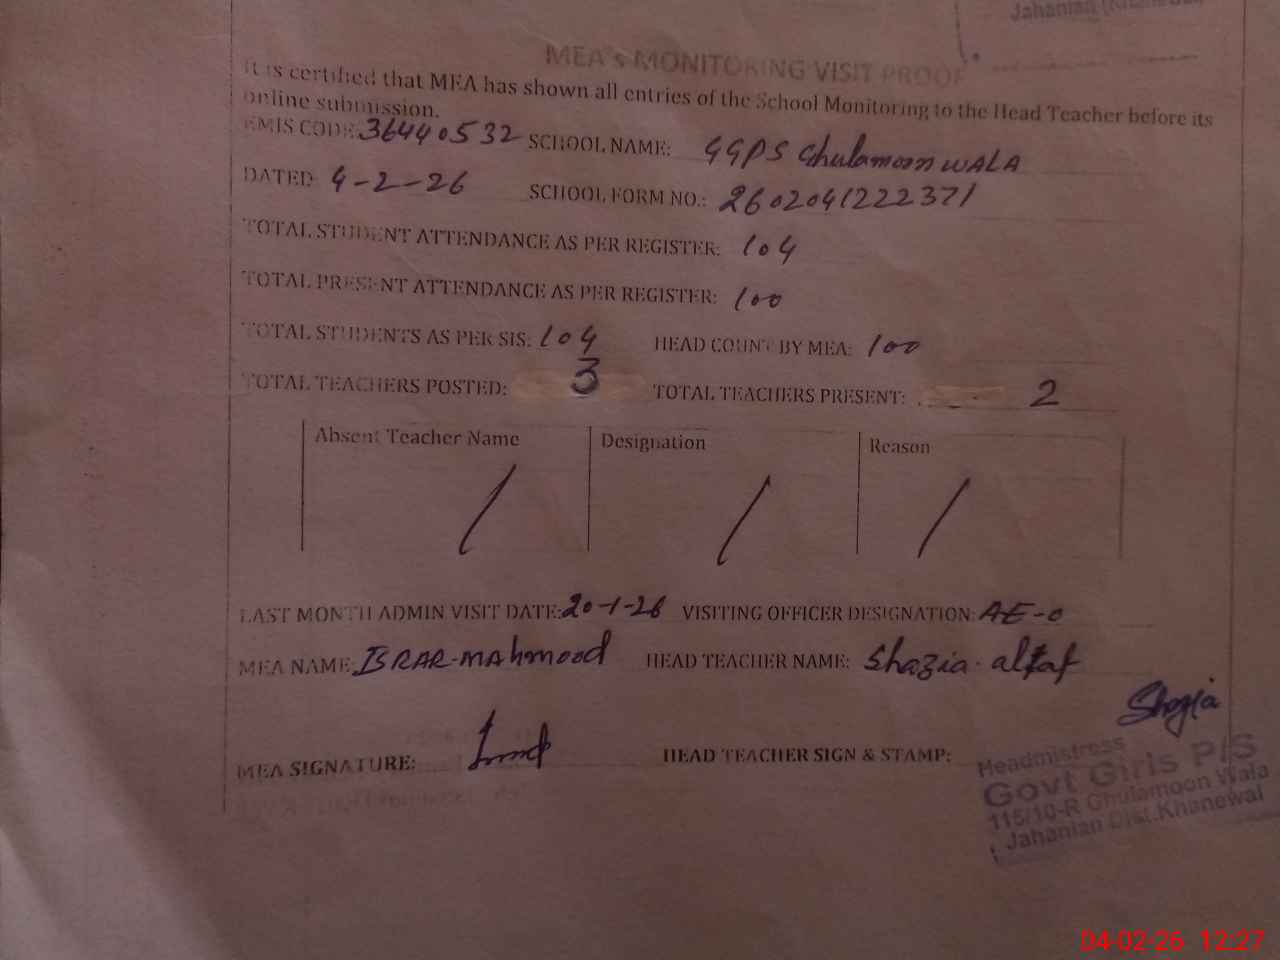 Jahanian (Khanewal
MEA's MONITORING VISIT PROOF
It is certified that MEA has shown all entries of the School Monitoring to the Head Teacher before its
online submission.
EMIS CODE: 36440532 SCHOOL NAME: GGPS Ghulamoon WALA
DATED: 4-2-26 SCHOOL FORM NO.: 2602041222371
TOTAL STUDENT ATTENDANCE AS PER REGISTER: 104
TOTAL PRESENT ATTENDANCE AS PER REGISTER: 100
TOTAL STUDENTS AS PER SIS: 104 HEAD COUNT BY MEA: 100
TOTAL TEACHERS POSTED: 3 TOTAL TEACHERS PRESENT: 2
Absent Teacher Name Designation Reason
/ / /
LAST MONTH ADMIN VISIT DATE: 20-1-26 VISITING OFFICER DESIGNATION: AE-O
MEA NAME: ISRAR-MAhmood HEAD TEACHER NAME: Shazia altaf
Shazia
MEA SIGNATURE: HEAD TEACHER SIGN & STAMP:
Headmistress
Govt Girls P/S
115/10-R Ghulamoon Wala
Jahanian Dist.Khanewal
04-02-26 12:27